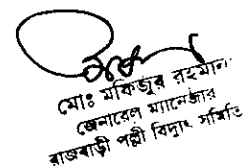 মোঃ মকিজুর রহমান
জেনারেল ম্যানেজার
রাজবাড়ী পল্লী বিদ্যুৎ সমিতি